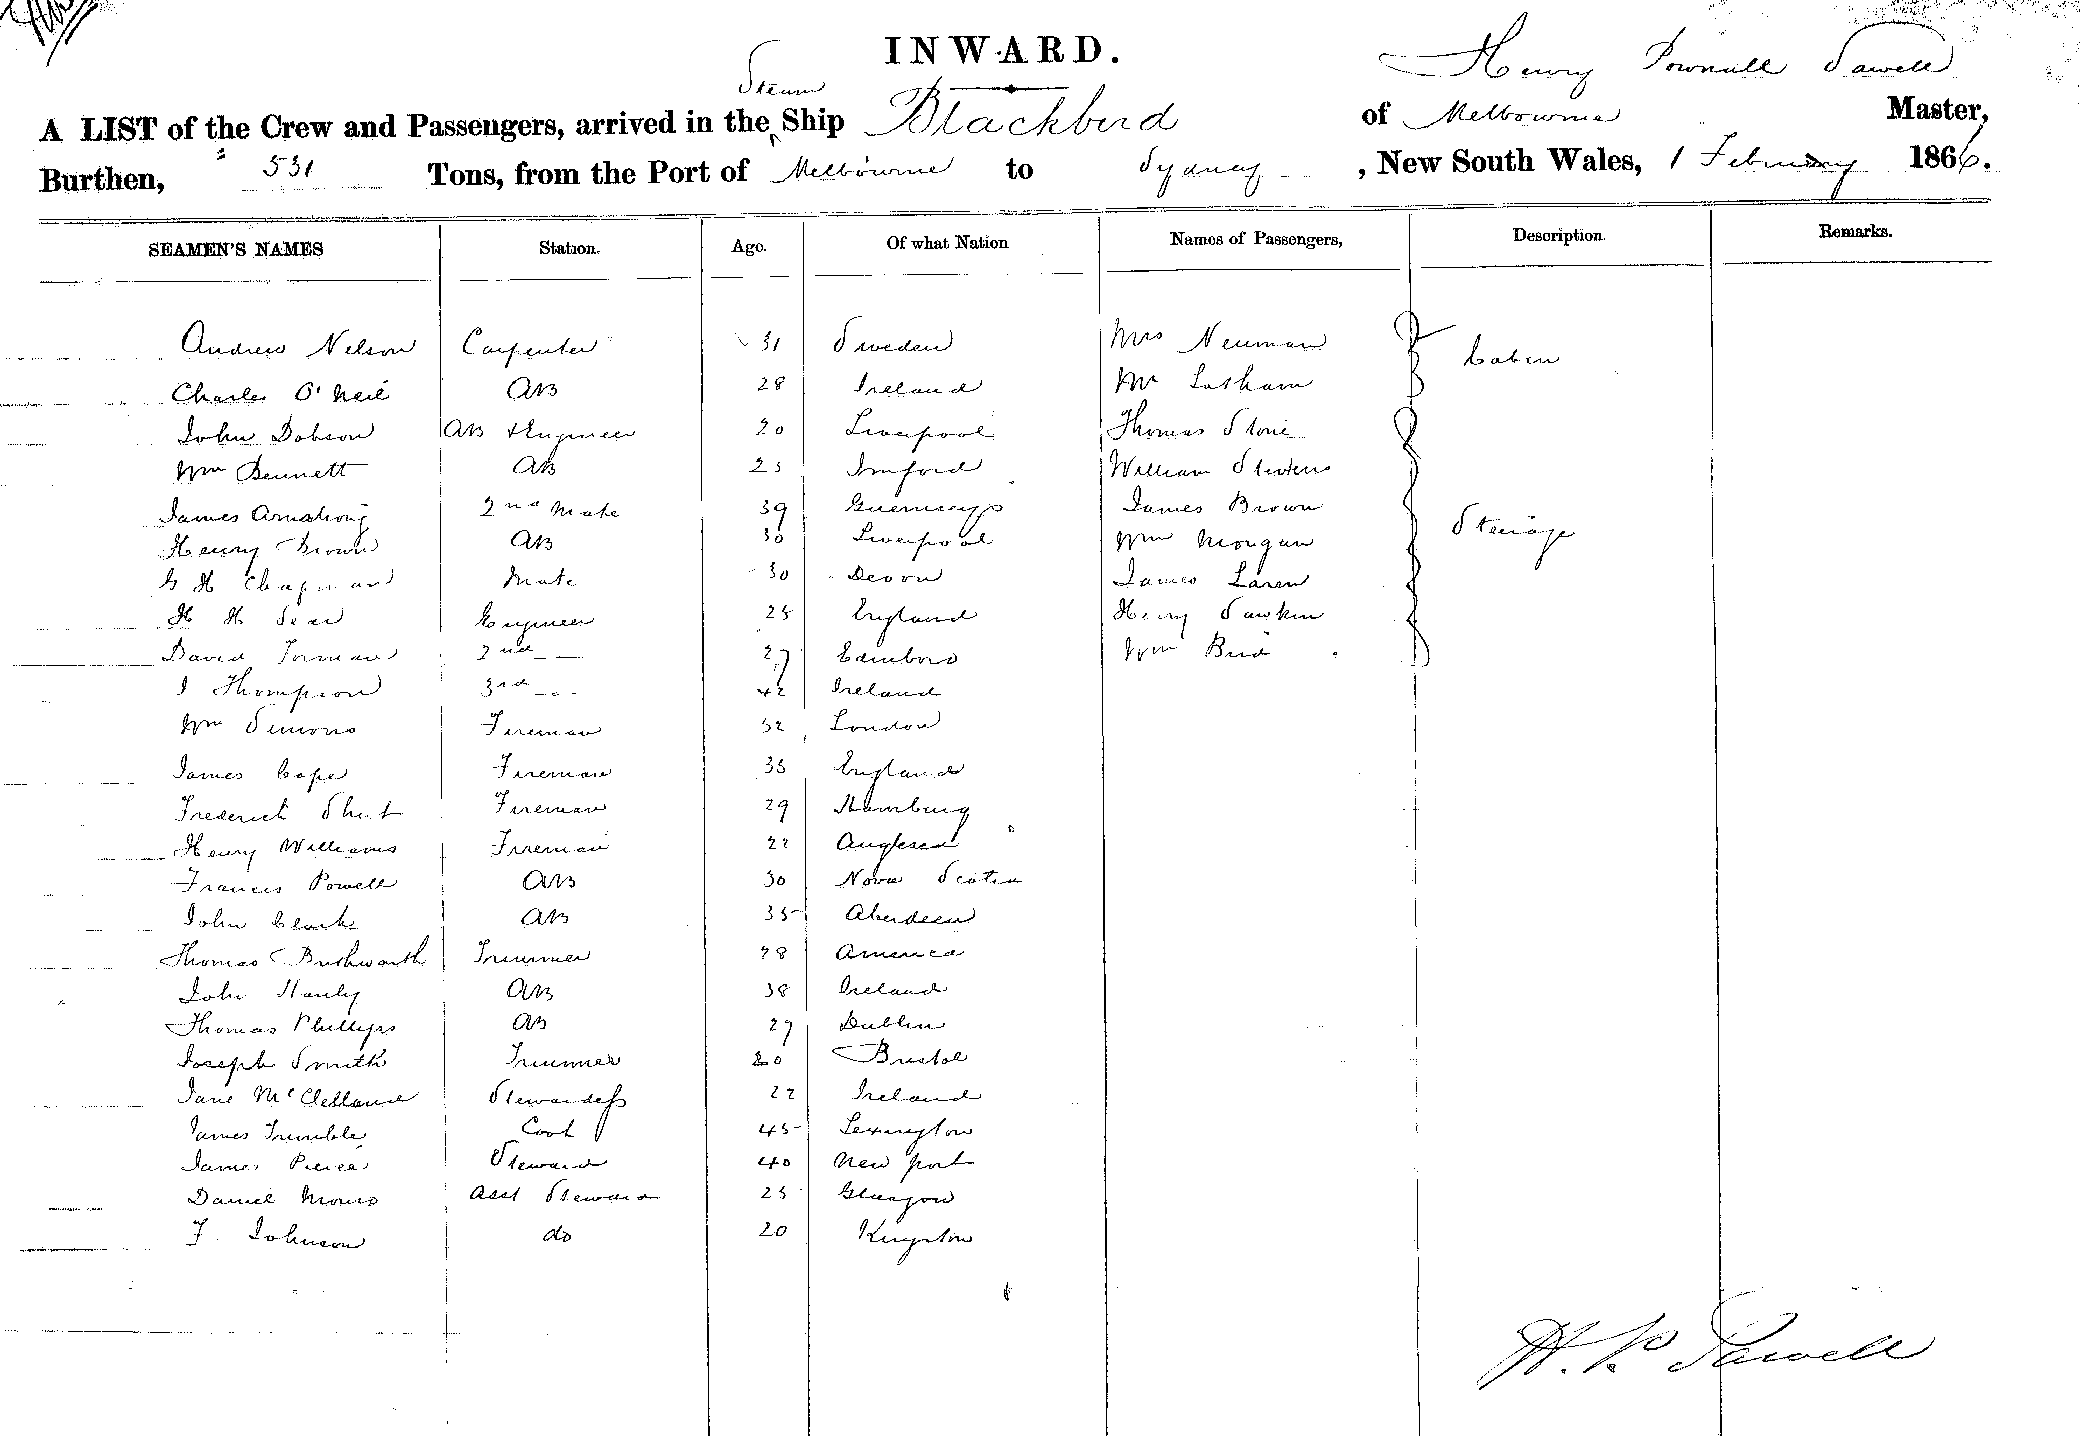 INWARD.
Henry Pownall Sawell
Steam
A LIST of the Crew and Passengers, arrived in the Ship Blackbird of Melbourne Master,
Burthen, 531 Tons, from the Port of Melbourne to Sydney, New South Wales, 1 February 1866.
SEAMEN'S NAMES Station. Age. Of what Nation Names of Passengers, Description. Remarks.
Andrew Nelson Carpenter 31 Sweden Mrs Neuman Cabin
Charles O'Neil AB 28 Ireland Mr Latham
John Dobson AB & Engineer 20 Liverpool Thomas Stone
Wm Bennett AB 25 William Stevens
James Armstrong 2nd Mate 39 Guernseys James Brown Steerage
Henry Brown AB 30 Liverpool Wm Morgan
G H Chapman Mate 30 Devon James Laren
H H Sear Engineer 25 England Henry Dawkin
David 2nd 27 Edinboro Wm Bird
J Thompson 3rd 42 Ireland
Wm Simons Fireman 32 London
James Cape Fireman 35 England
Frederick Fireman 29 Hamburg
Henry Williams Fireman 22 Anglesea
Francis Powell AB 30 Nova Scotia
John Clark AB 35 Aberdeen
Thomas Buthworth Trimmer 28 America
John Hanly AB 38 Ireland
Thomas Phillips AB 27 Dublin
Joseph Smith Trimmer 20 Bristol
Jane McClelland Stewardess 22 Ireland
James Trimble Cook 45 Lexington
James Pierce Steward 40 New port
Daniel Morris Asst Steward 25 Glasgow
F. Johnson do 20 Kingston
H. P. Sawell